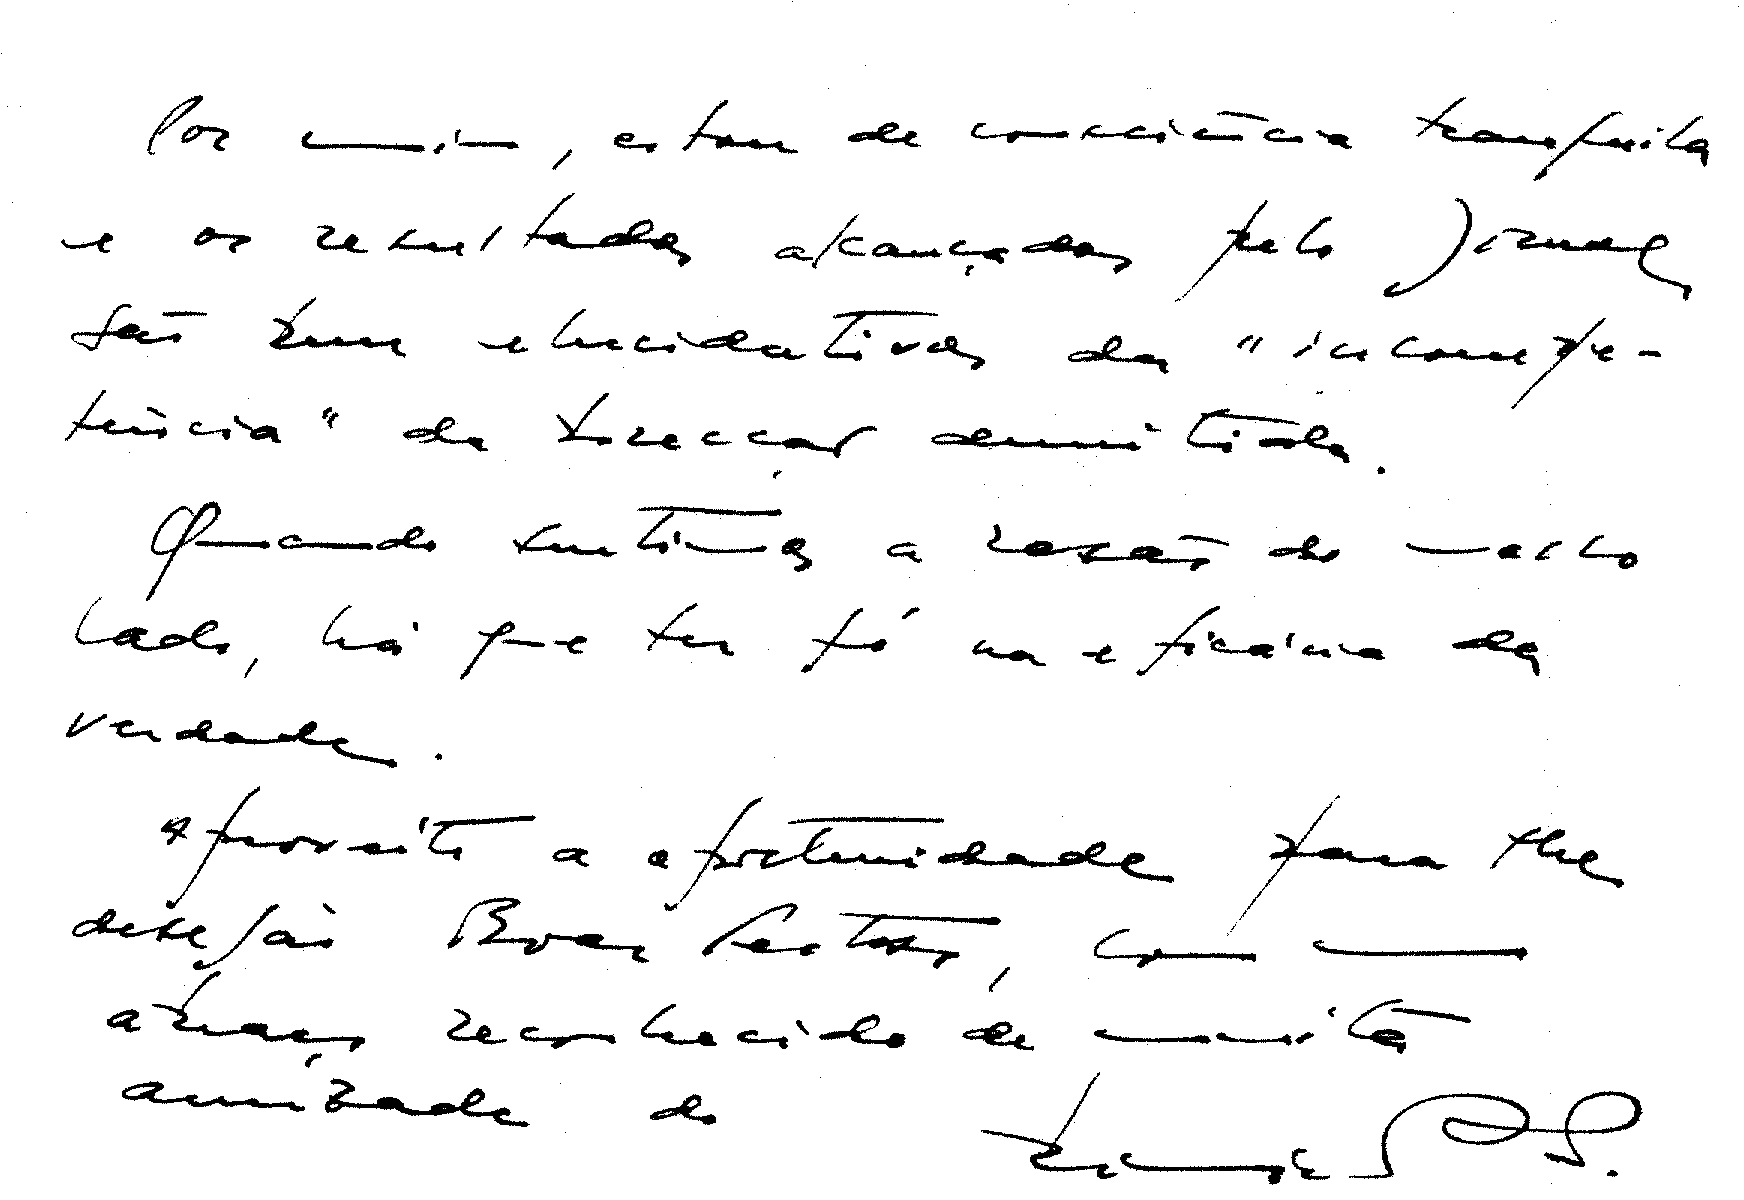 Por mim, estou de consciência tranquila
e os resultados alcançados pelo Jornal
são bem elucidativos da "incompe-
tência" da direcção demitida.
Quando sentimos a razão do nosso
lado, há que ter fé na eficácia da
verdade.
Aproveito a oportunidade para lhe
desejar Boas Festas, com um
abraço reconhecido de muita
amizade do